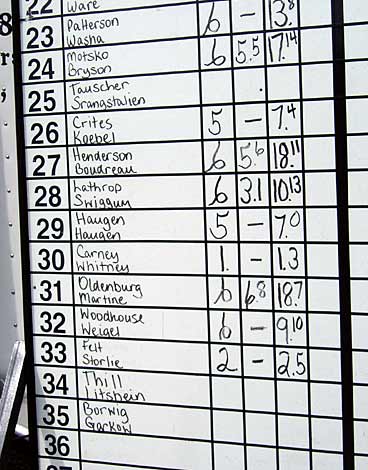 22 Ware 13.8
23 Patterson 6 -
Washa
24 Motsko 6 5.5 17.14
Bryson
25 Tauscher
Srangstalien
26 Crites 5 - 7.4
Koebel
27 Henderson 6 5.6 18.11
Boudreau
28 Lathrop 6 3.1 10.13
Swiggum
29 Haugen 5 - 7.0
Haugen
30 Carney 1. - 1.3
Whitney
31 Oldenburg 6 6.8 18.7
Martine
32 Woodhouse 6 - 9.10
Weigel
33 Felt 2 - 2.5
Storlie
34 Thill
Litshein
35 Borwig
Garkow
36